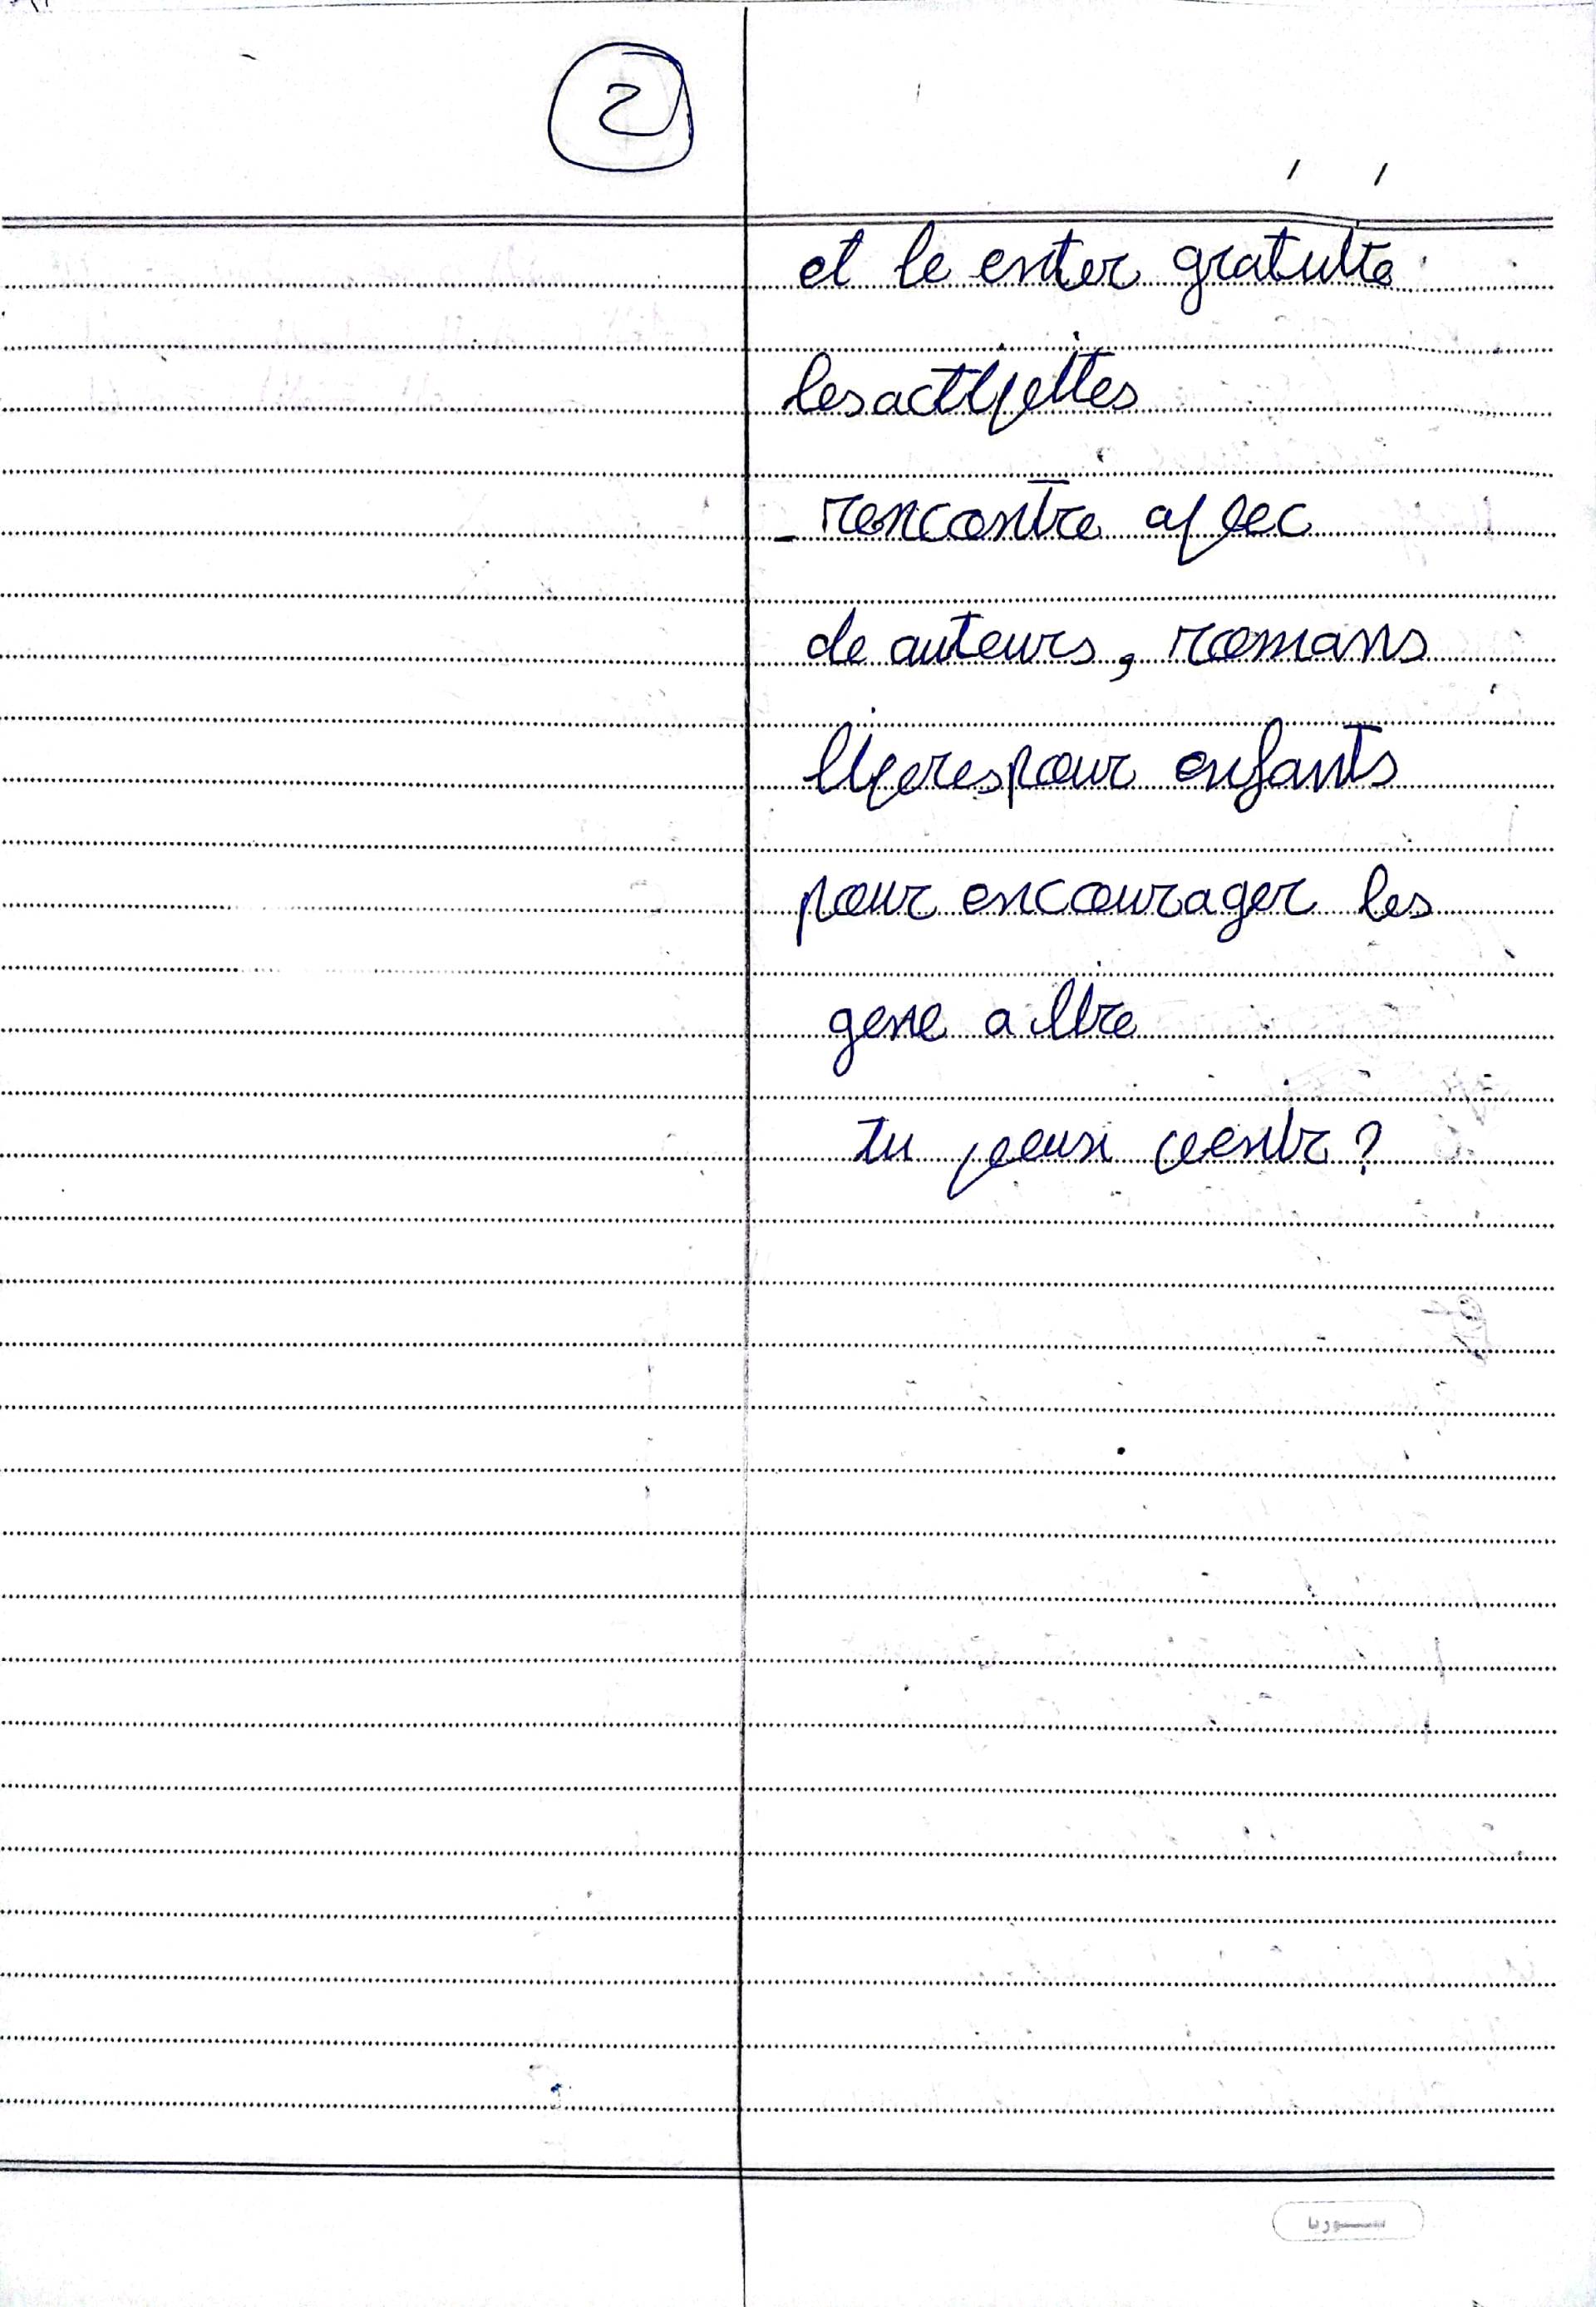 2
et le enter gratuite
les activettes
- rencontre avec
de auteurs, romans
liveres pour enfants
pour encourager les
gene a lire
tu veusi venir ?
سورنا